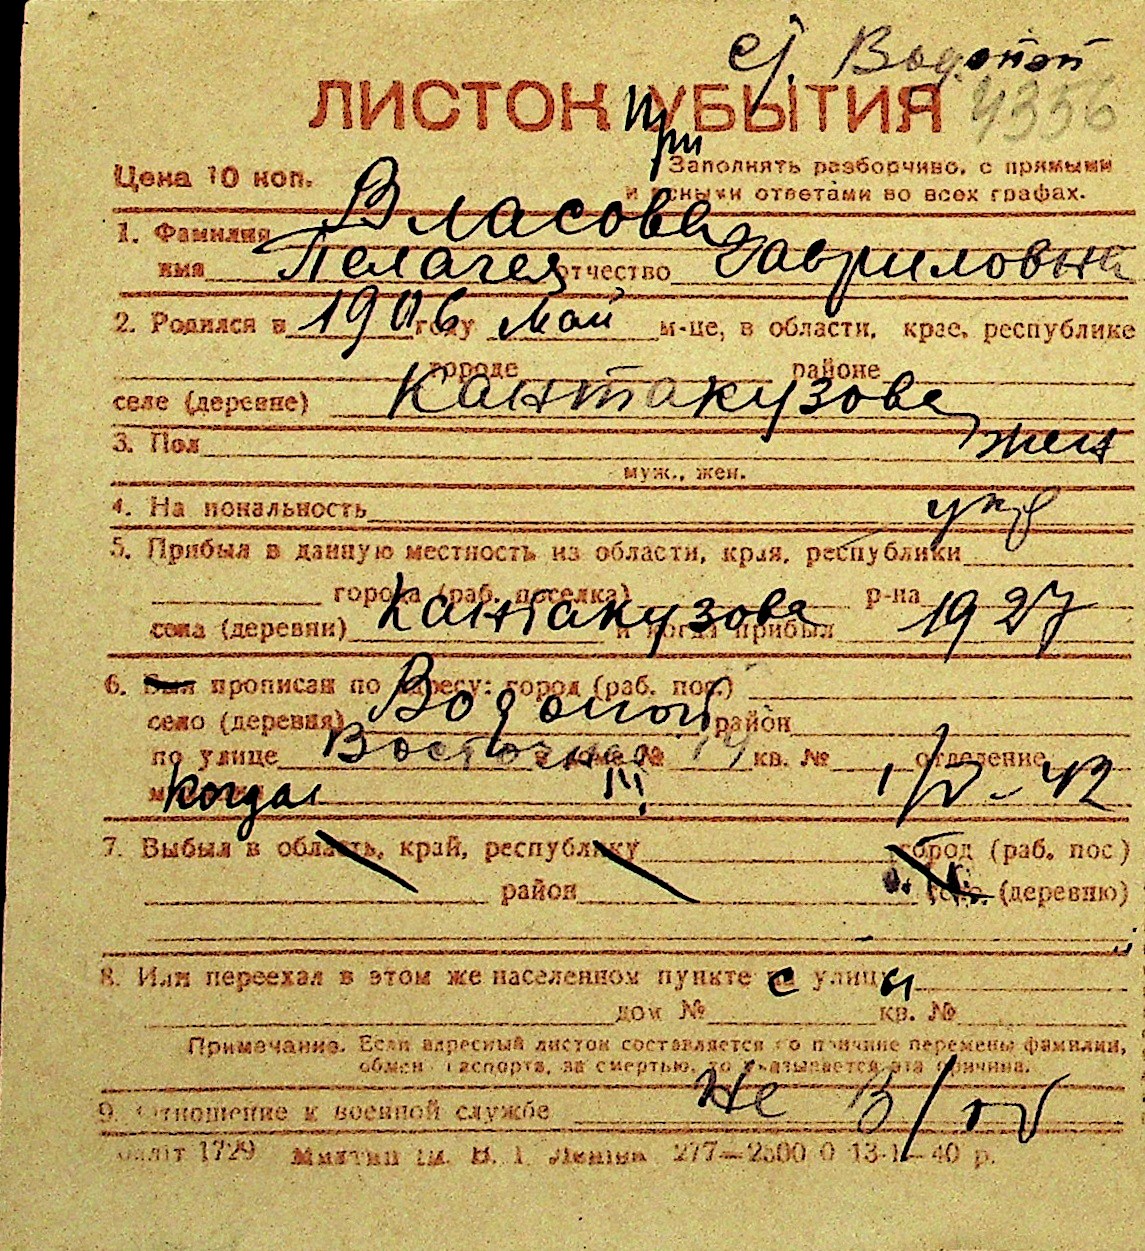 с/. Водопой
ЛИСТОК УБЫТИЯ 4356
При
Цена 10 коп. Заполнять разборчиво, с прямыми
и ясными ответами во всех графах.
1. Фамилия Власова
имя Пелагея отчество Гавриловна
2. Родился в 1906 году май м-це, в области, крае, республике
городе районе
селе (деревне) Кантакузова
3. Пол жен
муж., жен.
4. Национальность укр
5. Прибыл в данную местность из области, края, республики
города (раб. поселка) р-на
села (деревни) Кантакузова и когда прибыл 1927
6. Был прописан по адресу: город (раб. пос.)
село (деревня) Водопой район
по улице Восточная в доме № 14 кв. № отделение
когда 1/V-42
7. Выбыл в область, край, республику город (раб. пос)
район село (деревню)
8. Или переехал в этом же населенном пункте с улицы
дом № кв. №
Примечание. Если адресный листок составляется по причине перемены фамилии,
обмен паспорта, за смертью, то указывается эта причина.
9. Отношение к военной службе Не в/об
1729 277—2500 0 13-1—40 р.